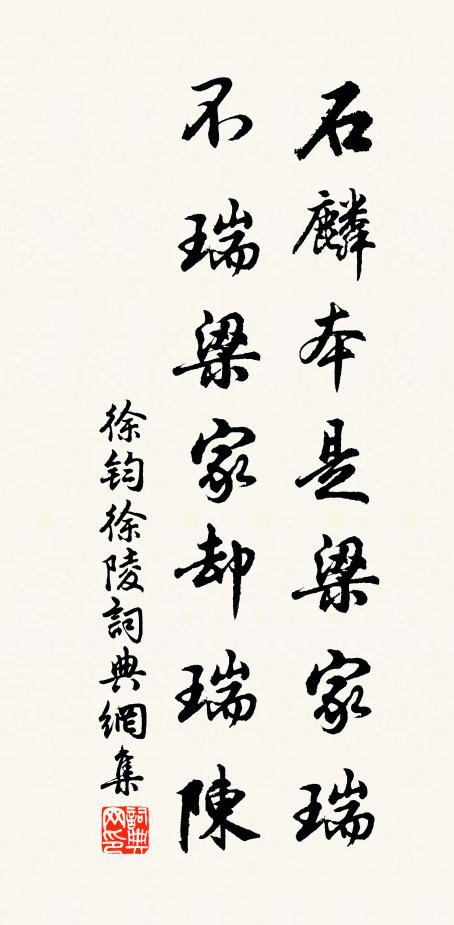 石麟本是梁家瑞
不瑞梁家却瑞陳
徐钧徐陵詞典網集
詞典网印